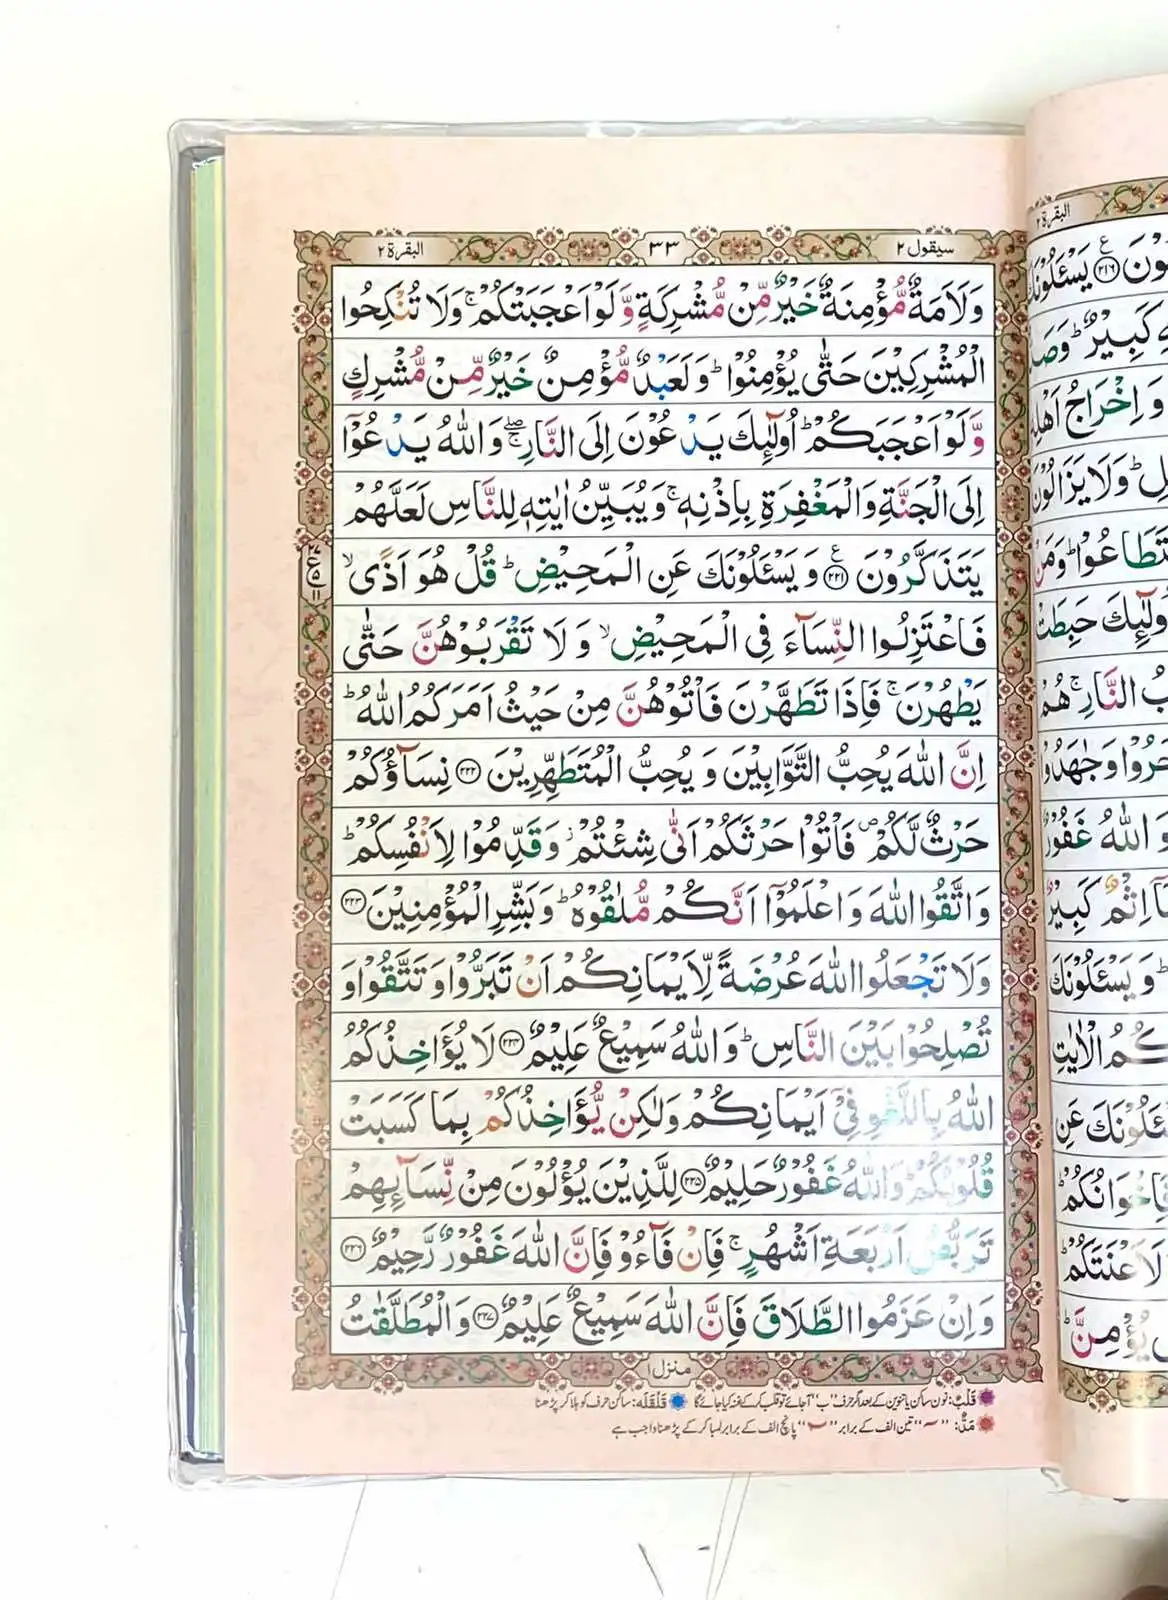 سيقول ٢ ٣٣ البقرة ٢
وَلَاَمَةٌ مُّؤْمِنَةٌ خَيْرٌ مِّنْ مُّشْرِكَةٍ وَّلَوْ اَعْجَبَتْكُمْ ۚ وَلَا تُنْكِحُوا
الْمُشْرِكِيْنَ حَتّٰى يُؤْمِنُوْا ؕ وَلَعَبْدٌ مُّؤْمِنٌ خَيْرٌ مِّنْ مُّشْرِكٍ
وَّلَوْ اَعْجَبَكُمْ ؕ اُولٰٓئِكَ يَدْعُوْنَ اِلَى النَّارِ ۖۚ وَاللّٰهُ يَدْعُوْٓا
اِلَى الْجَنَّةِ وَالْمَغْفِرَةِ بِاِذْنِهٖ ۚ وَيُبَيِّنُ اٰيٰتِهٖ لِلنَّاسِ لَعَلَّهُمْ
يَتَذَكَّرُوْنَ ﴿۲۲۱﴾ ع وَيَسْـَٔلُوْنَكَ عَنِ الْمَحِيْضِ ؕ قُلْ هُوَ اَذًى ۙ
فَاعْتَزِلُوا النِّسَآءَ فِى الْمَحِيْضِ ۙ وَلَا تَقْرَبُوْهُنَّ حَتّٰى
يَطْهُرْنَ ۚ فَاِذَا تَطَهَّرْنَ فَاْتُوْهُنَّ مِنْ حَيْثُ اَمَرَكُمُ اللّٰهُ ؕ
اِنَّ اللّٰهَ يُحِبُّ التَّوَّابِيْنَ وَيُحِبُّ الْمُتَطَهِّرِيْنَ ﴿۲۲۲﴾ نِسَآؤُكُمْ
حَرْثٌ لَّكُمْ ۪ فَاْتُوْا حَرْثَكُمْ اَنّٰى شِئْتُمْ ؗ وَقَدِّمُوْا لِاَنْفُسِكُمْ ؕ
وَاتَّقُوا اللّٰهَ وَاعْلَمُوْٓا اَنَّكُمْ مُّلٰقُوْهُ ؕ وَبَشِّرِ الْمُؤْمِنِيْنَ ﴿۲۲۳﴾
وَلَا تَجْعَلُوا اللّٰهَ عُرْضَةً لِّاَيْمَانِكُمْ اَنْ تَبَرُّوْا وَتَتَّقُوْا وَ
تُصْلِحُوْا بَيْنَ النَّاسِ ؕ وَاللّٰهُ سَمِيْعٌ عَلِيْمٌ ﴿۲۲۴﴾ لَا يُؤَاخِذُكُمُ
اللّٰهُ بِاللَّغْوِ فِىْٓ اَيْمَانِكُمْ وَلٰكِنْ يُّؤَاخِذُكُمْ بِمَا كَسَبَتْ
قُلُوْبُكُمْ ؕ وَاللّٰهُ غَفُوْرٌ حَلِيْمٌ ﴿۲۲۵﴾ لِلَّذِيْنَ يُؤْلُوْنَ مِنْ نِّسَآئِهِمْ
تَرَبُّصُ اَرْبَعَةِ اَشْهُرٍ ۚ فَاِنْ فَآءُوْ فَاِنَّ اللّٰهَ غَفُوْرٌ رَّحِيْمٌ ﴿۲۲۶﴾
وَاِنْ عَزَمُوا الطَّلَاقَ فَاِنَّ اللّٰهَ سَمِيْعٌ عَلِيْمٌ ﴿۲۲۷﴾ وَالْمُطَلَّقٰتُ
منزل ۱
قَلْب: نون ساکن یا تنوین کے بعد اگر حرف "ب" آجائے تو قلب کرکے غنہ کیا جائے گا قَلْقَلَه: ساکن حرف کو ہلا کر پڑھنا
مَدّ: "~" تین الف کے برابر "~" پانچ الف کے برابر لمبا کر کے پڑھنا واجب ہے
البقرة ٢
﴿۲۱۶﴾ ع يَسْـَٔلُوْنَكَ
كَبِيْرٌ ؕ وَصَدٌّ
وَاِخْرَاجُ اَهْلِهٖ
وَلَا يَزَالُوْنَ
وَمَنْ
حَبِطَتْ
النَّارِ ۚ هُمْ
وَجٰهَدُوْا
وَاللّٰهُ غَفُوْرٌ
اِثْمٌ كَبِيْرٌ
وَيَسْـَٔلُوْنَكَ
الْاٰيٰتِ
عَنِ
لَاَعْنَتَكُمْ